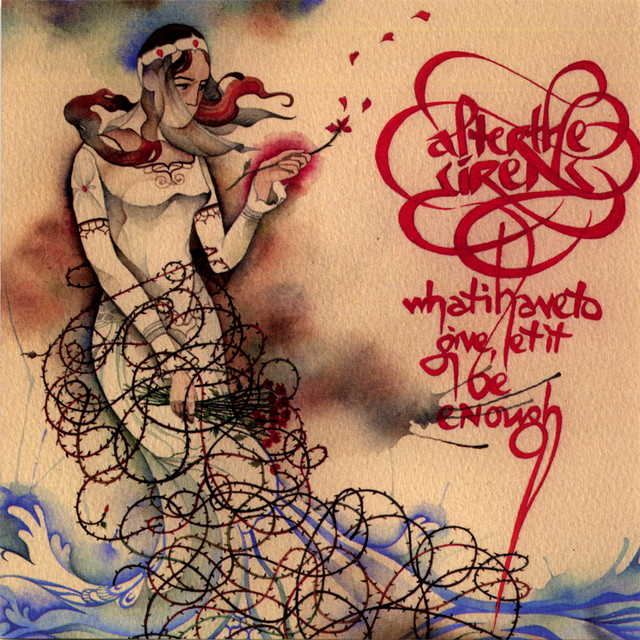 afterthe
sirens
whatihaveto
give, letit
be
enough